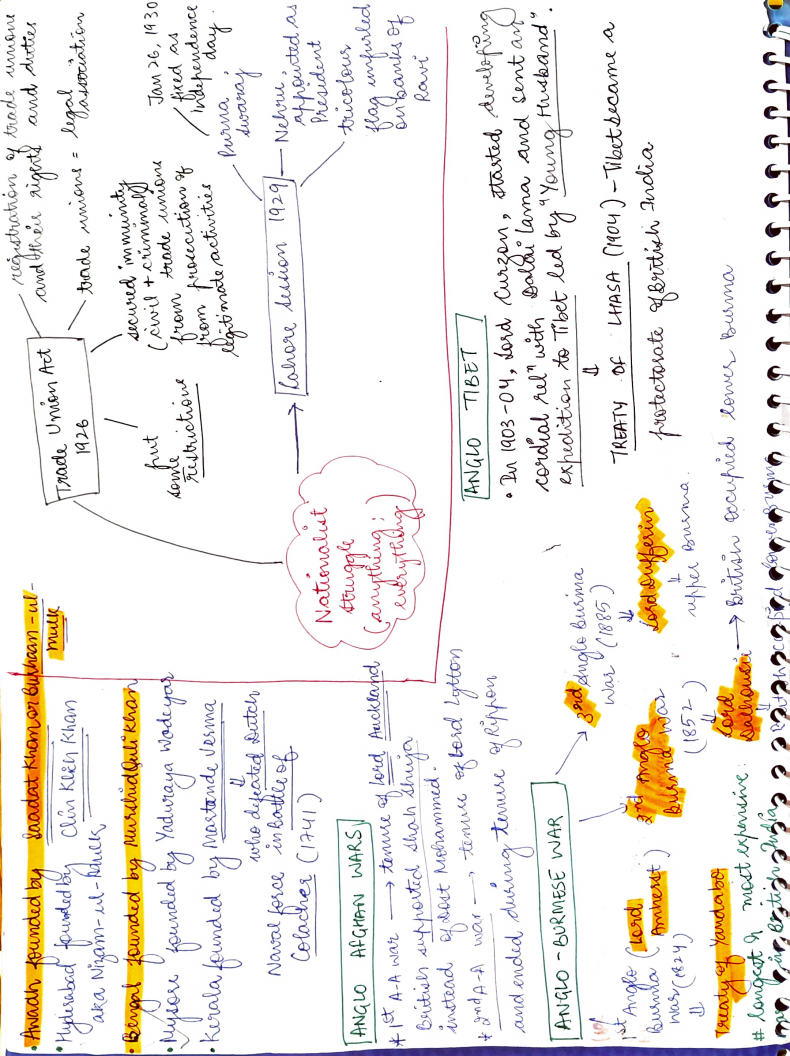 • Awadh founded by Saadat Khan or Burhaan-ul-
Mulk
• Hyderabad founded by Chin Kilich Khan
aka Nizam-ul-Mulk
• Bengal founded by Murshid Quli Khan
• Mysore founded by Yaduraya Wodeyar
• Kerala founded by Martanda Verma
⇓
who defeated Dutch
Naval force in battle of
Colachel (1741)
ANGLO AFGHAN WARS
* 1st A-A war → tenure of Lord Auckland
British supported Shah Shuja
instead of Dost Mohammed.
* 2nd A-A war → tenure of Lord Lytton
and ended during tenure of Rippon
ANGLO-BURMESE WAR
1st Anglo
Burma (Lord
Amherst)
War (1824)
⇓
Treaty of Yandabo
# longest & most expensive
war in British India
2nd Anglo
Burma War
(1852)
⇓
Lord
Dalhousie → British occupied lower Burma
3rd Anglo Burma
War (1885)
⇓
Lord Dufferin
↓
upper Burma.
Nationalist
struggle
(anything;
everything)
Trade Union Act
1926
registration of trade unions
and their rights and duties
trade unions = legal
association
secured immunity
(civil + criminal)
from trade unions
from prosecution of
legitimate activities
put
some
restrictions
→ Lahore session 1929
Purna
Swaraj
Jan 26, 1930
fixed as
independence
day.
Nehru,
appointed as
President
tricolour
flag unfurled
on banks of
Ravi
ANGLO TIBET
• In 1903-04, Lord Curzon, started developing
cordial relⁿ with Dalai Lama and sent an
expedition to Tibet led by "Young Husband".
⇓
TREATY OF LHASA (1904) - Tibet became a
protectorate of British India